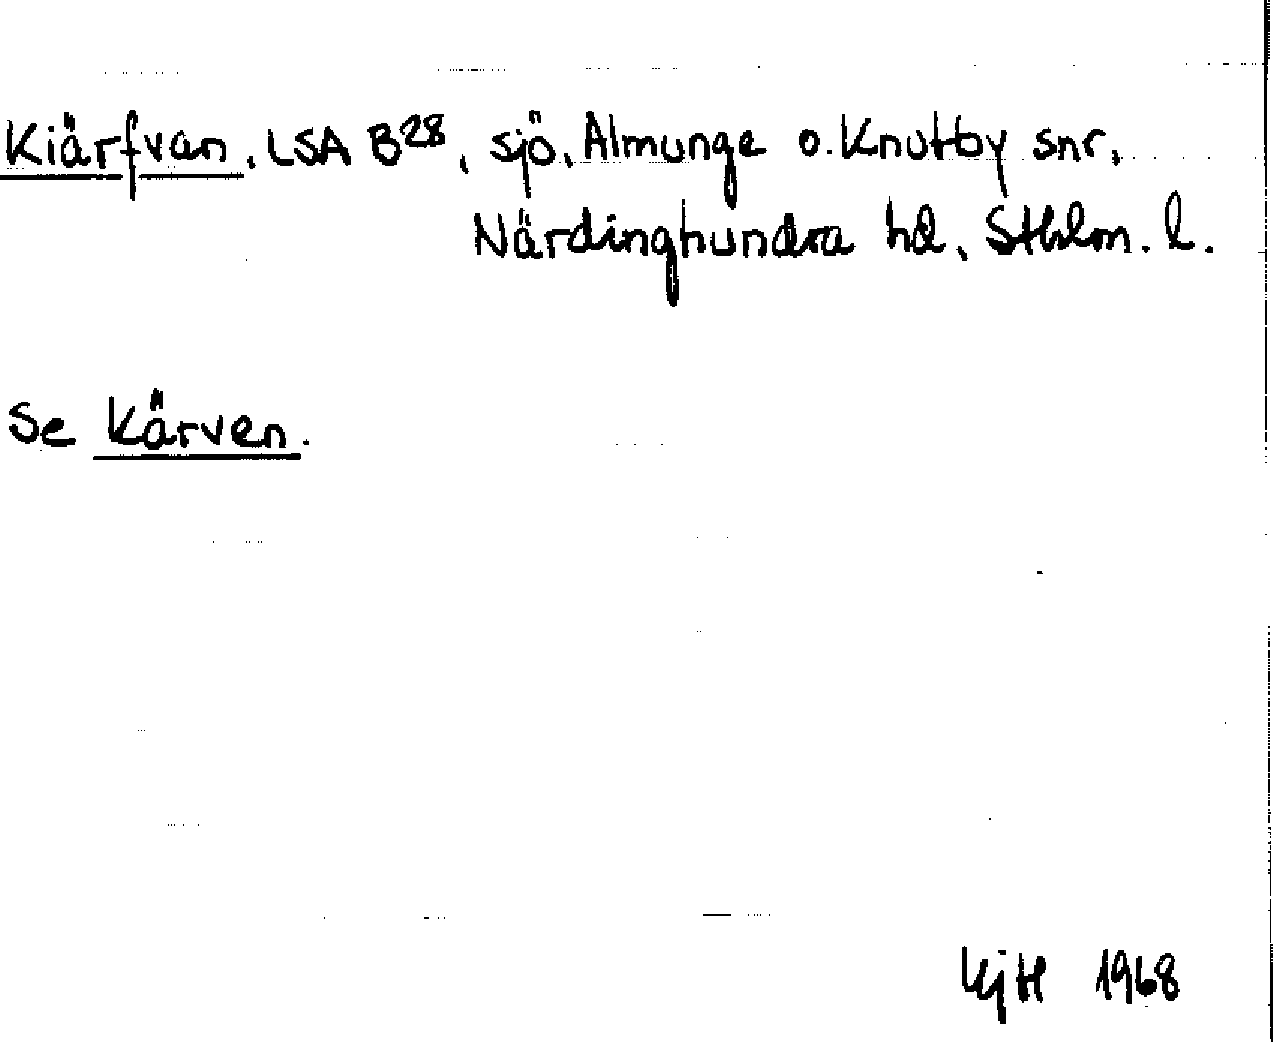 Kiärfvan. LSA B28, sjö, Almunge o. Knutby snr,
Närdinghundra hd, Sthlm. l.
Se Kärven.
KjH 1968